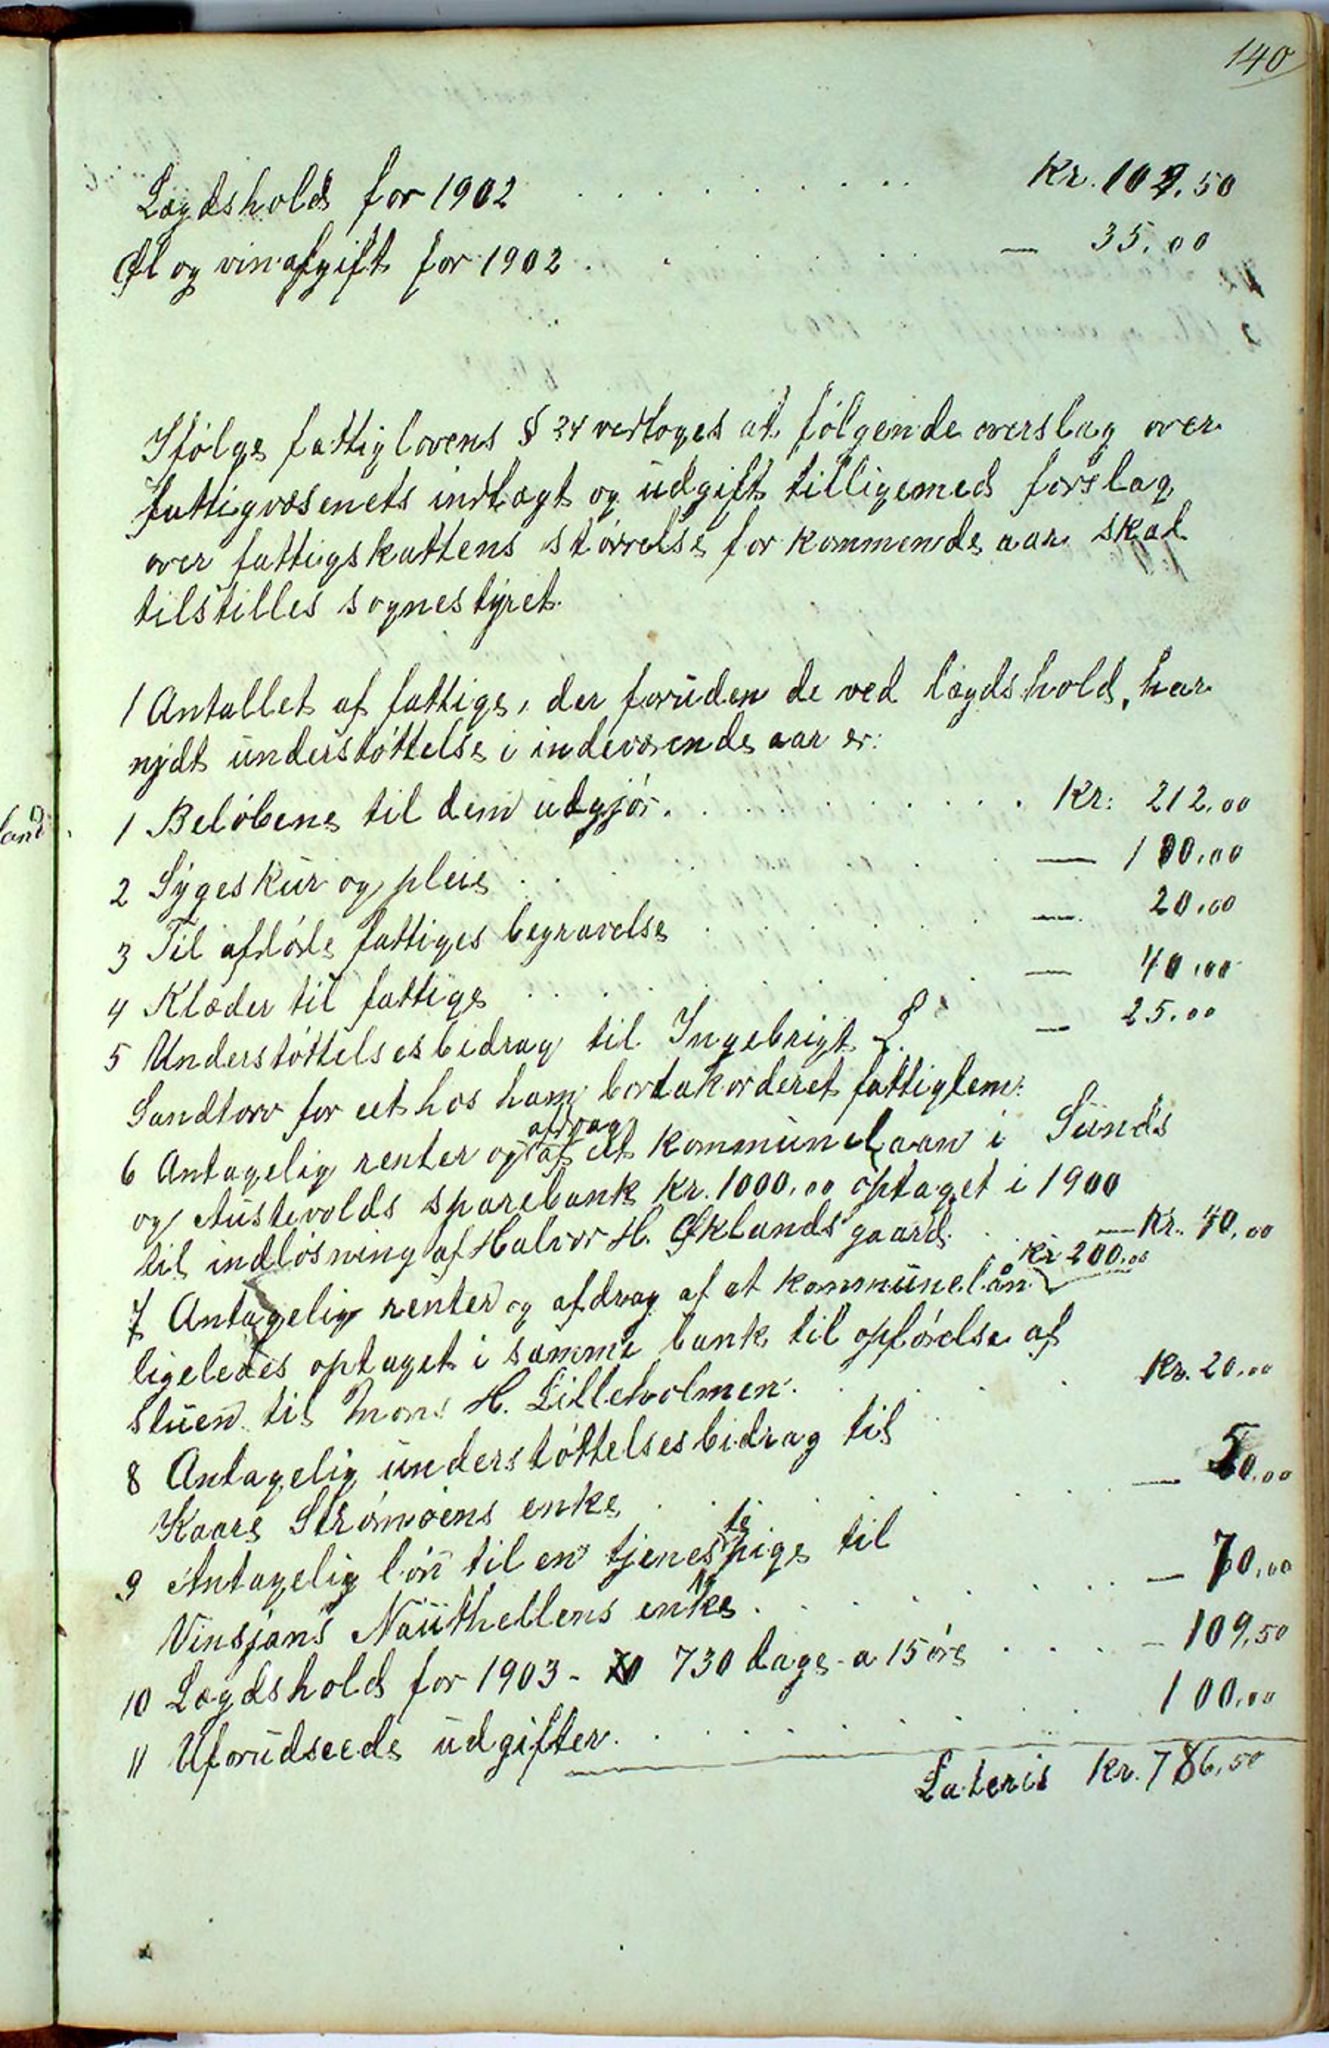 140
Lægdshold for 1902 . . . . . . . . . . Kr. 109,50
Øl og vinafgift for 1902 . . . . . . . — 35,00
Ifølge fattiglovens § 34 vedtoges at følgende overslag over
fattigvæsenets indtægt og udgift tilligemed forslag
over fattigskattens størrelse for kommende aar skal
tilstilles sognestyret.
1 Antallet af fattige, der foruden de ved lægdshold, har
nydt understøttelse i indeværende aar er:
1 Beløbene til dem udgjør . . . . . . . . . Kr: 212,00
2 Sygeskur og pleie . . . . . . — 100,00
3 Til afdøde fattiges begravelse . . . . . — 20,00
4 Klæder til fattige . . . . . . . . — 40,00
5 Understøttelsesbidrag til Ingebrigt L. — 25,00
Sandtorv for eet hos ham bortakorderet fattiglem:
6 Antagelig renter og afdrag af et kommunelaan i Sunds
og Austevolds sparebank Kr. 1000,00 optaget i 1900
til indløsning af Halvor H. Øklandsgaard. . . — Kr. 40,00
7 Antagelig renter og afdrag af et kommunelån Kr 200,00
ligeledes optaget i samme bank til opførelse af
stuen til Mons H. Lilleholmen . . . . . . Kr. 20,00
8 Antagelig understøttelsesbidrag til
Kaare Strømøens enke . . . . . . . . — 50,00
9 Antagelig løn til en tjenestepige til
Vinsjans Nautheллens enke . . . . . . . — 70,00
10 Lægdshold for 1903 - 730 dage a 15 øre . . . . — 109,50
11 Uforudseede udgifter . . . . . . . . . 100,00
Lateris Kr. 786,50
land